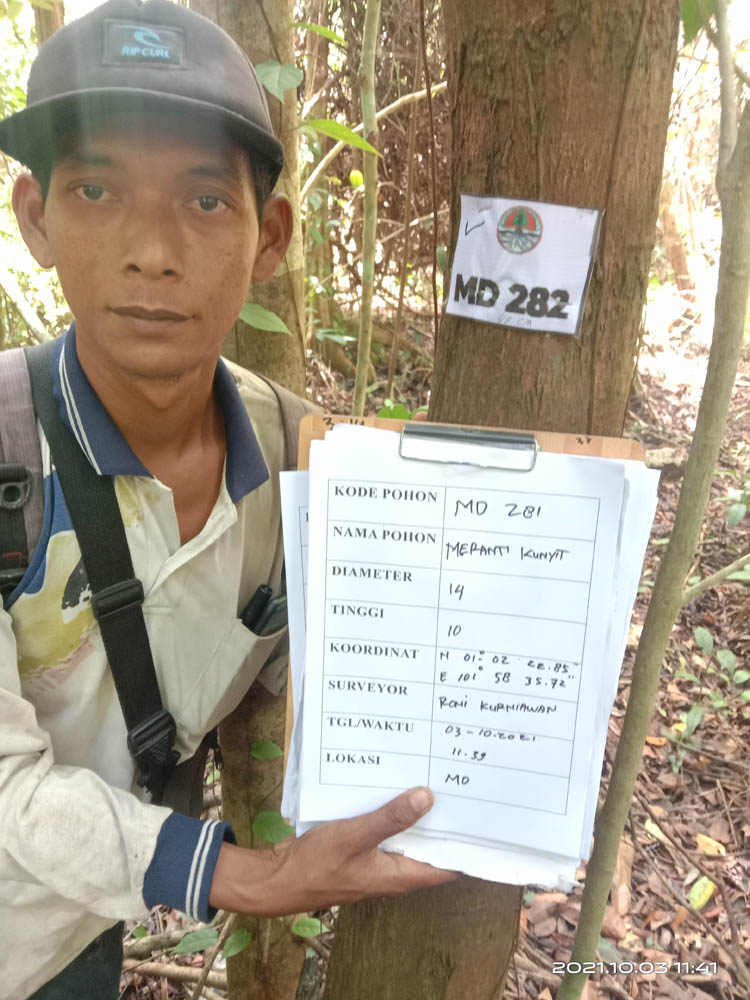 RIP CURL
MD 282
KODE POHON MD 281
NAMA POHON MERANTI KUNYIT
DIAMETER 14
TINGGI 10
KOORDINAT N 01° 02' 22.85"
E 101° 58' 35.72"
SURVEYOR RONI KURNIAWAN
TGL/WAKTU 03-10-2021
11.39
LOKASI MD
2021.10.03 11:41